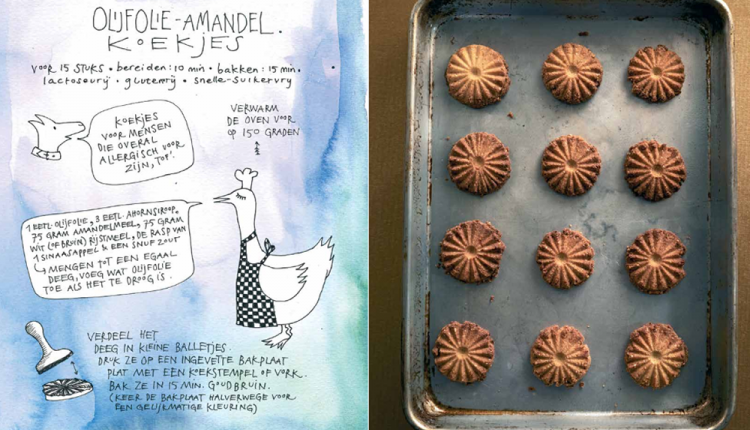 OLIJFOLIE-AMANDEL.
KOEKJES
VOOR 15 STUKS • bereiden: 10 min • bakken: 15 min.
lactosevrij • glutenvrij • snelle-suikervrij
KOEKJES
VOOR MENSEN
DIE OVERAL
ALLERGISCH VOOR
ZIJN, TOF.
VERWARM
DE OVEN VOOR
OP 150 GRADEN
1 EETL. OLIJFOLIE, 3 EETL. AHORNSIROOP.
75 GRAM AMANDELMEEL, 75 GRAM
WIT (OF BRUIN) RIJSTMEEL, DE RASP VAN
1 SINAASAPPEL & EEN SNUF ZOUT
↳ MENGEN TOT EEN EGAAL
DEEG, VOEG WAT OLIJFOLIE
TOE ALS HET TE DROOG IS.
VERDEEL HET
DEEG IN KLEINE BALLETJES.
DRUK ZE OP EEN INGEVETTE BAKPLAAT
PLAT MET EEN KOEKSTEMPEL OF VORK.
BAK ZE IN 15 MIN. GOUDBRUIN.
(KEER DE BAKPLAAT HALVERWEGE VOOR
EEN GELIJKMATIGE KLEURING)